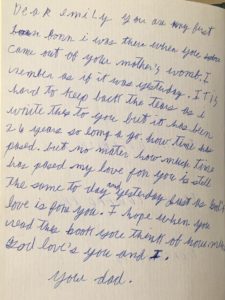 Dear emily you are my first
born i was there when you
came out of your mother's womb. I
rember as if it was yesterday. IT is
hard to keep back the tears as i
write this to you but it has been
26 years so long a go. how time has
pased. but no mater how much time
has pased my love for you is still
the same to day and yesterday just as God's
love is for you. I hope when you
read this book you think of how much
God love's you and I.
Your dad.